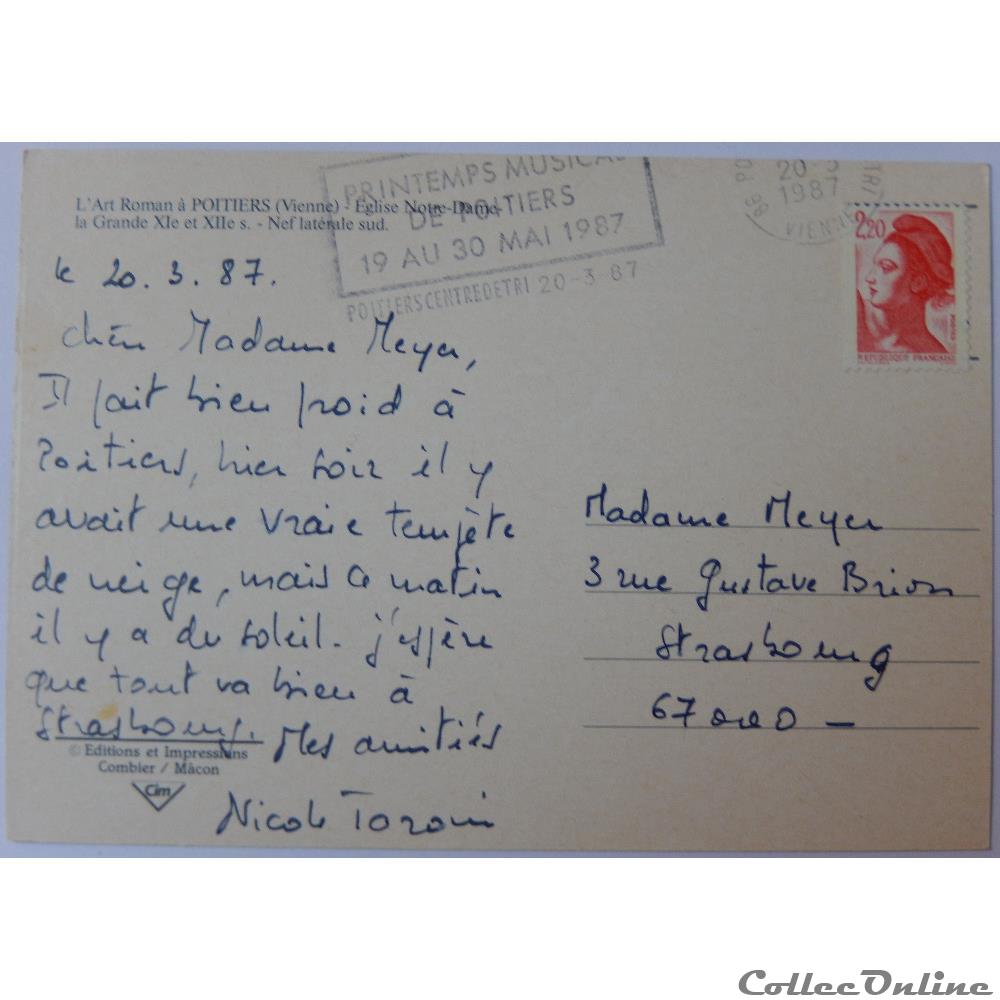 L'Art Roman à POITIERS (Vienne) - Eglise Notre-Dame-
la Grande XIe et XIIe s. - Nef latérale sud.
PRINTEMPS MUSICAL
DE POITIERS
19 AU 30 MAI 1987
POITIERS CENTRE DE TRI 20-3 87
20-3
1987
86 PO
TRI
VIENNE
2,20
POSTES
REPUBLIQUE FRANÇAISE
le 20.3.87.
Chère Madame Meyer,
Il fait bien froid à
Poitiers, hier soir il y
avait une vraie tempête
de neige, mais ce matin
il y a du soleil. j'espère
que tout va bien à
Strasbourg. Mes amitiés
Nicole
Madame Meyer
3 rue Gustave Brion
Strasbourg
67000 -
© Editions et Impressions
Combier / Mâcon
Cim
CollecOnline